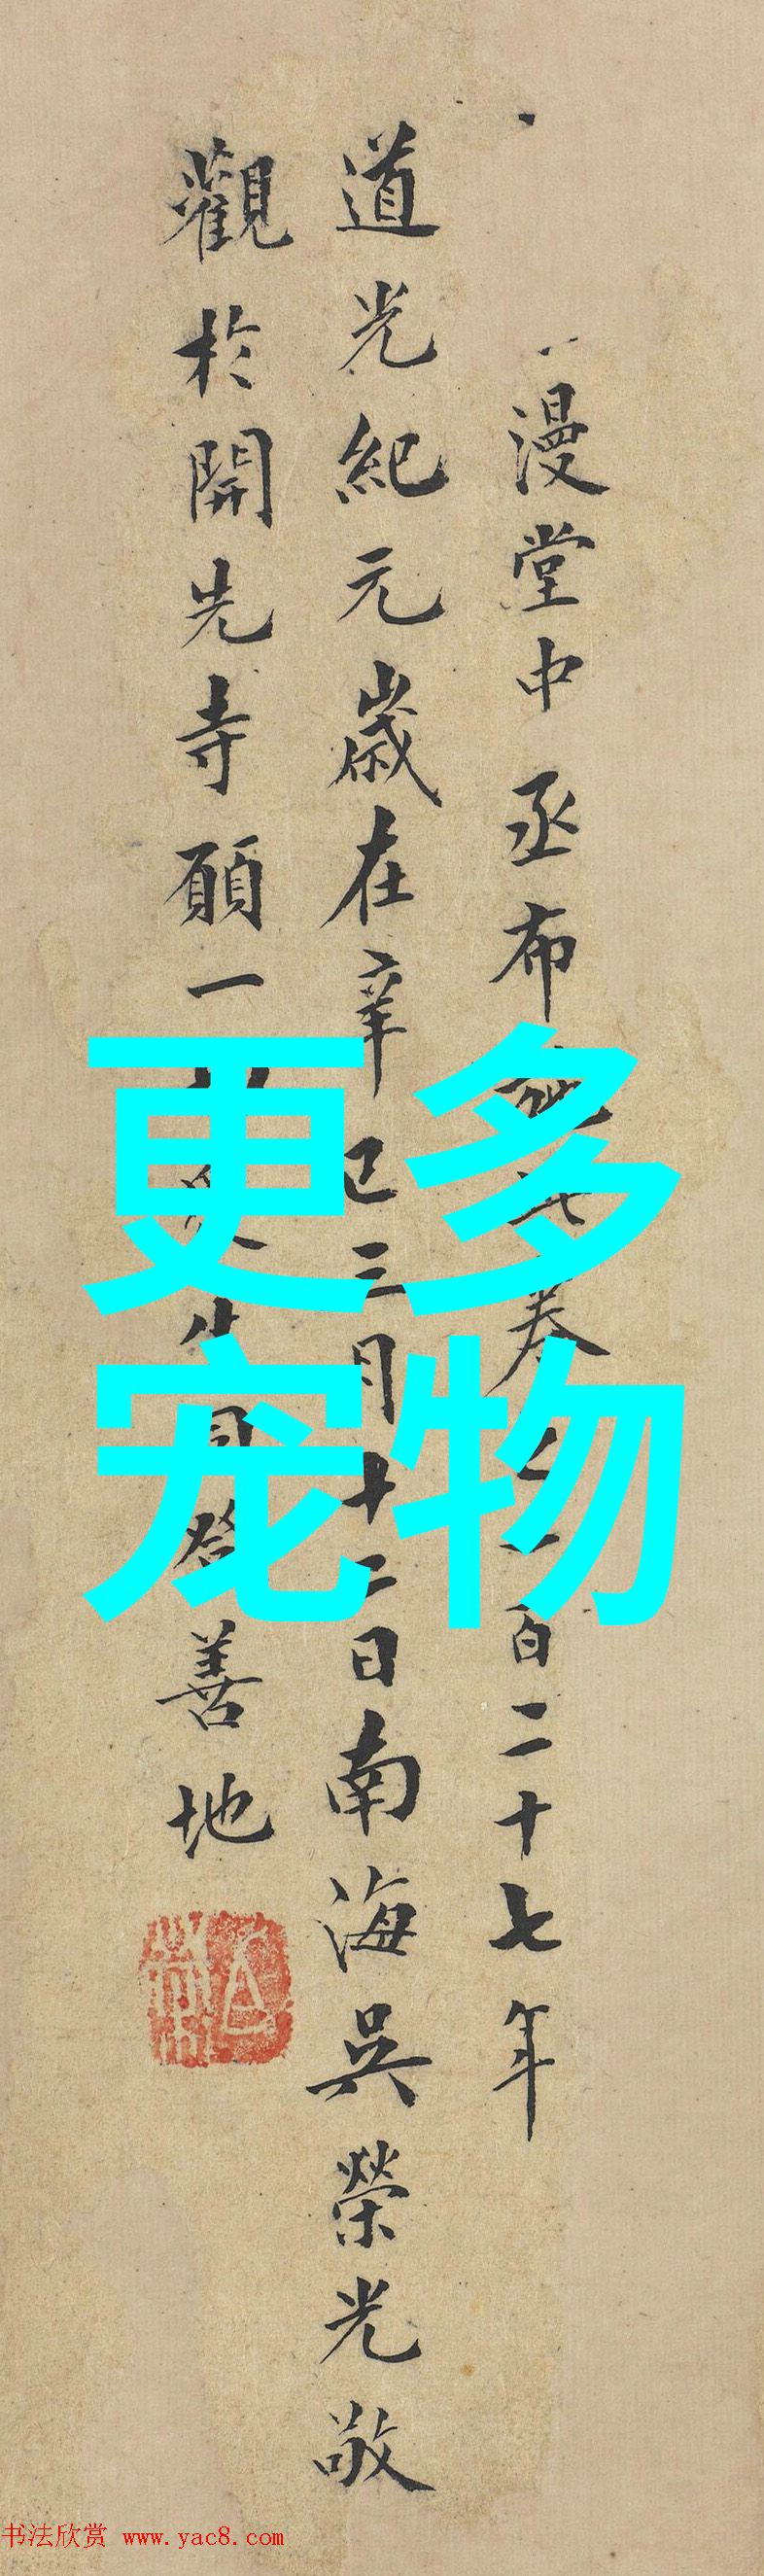 漫堂中丞布施此卷之一百二十七年
道光紀元歲在辛巳三月十二日南海吳榮光敬
觀於開先寺願一善地
更多
宠物
书法欣赏 www.yac8.com